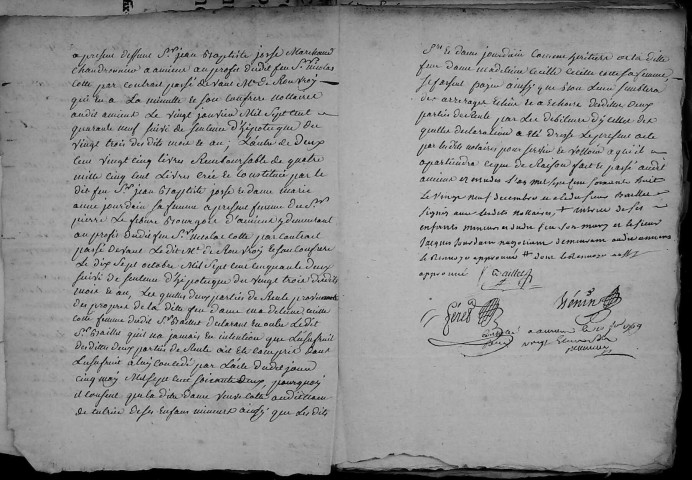 a present deffunt Sr. jean Baptiste josse Marchand
Chandronnier a amiens au profit dudit feu Sr. Nicolas
Cotte par contrat passé devant Me. de Rouvroy
qui en a La minutte et son Confrere notaires
audit amiens Le vingt janvier Mil Sept cent
quarante neuf suivi de sentence d'hipoteque du
vingt trois desdits mois et an; L'autre de deux
cent vingt cinq Livres Remboursable de quatre
mille cinq cent Livres Crée et Constituée par le
dit feu Sr. jean Baptiste josse et dame marie
anne jourdain sa femme a present femme du Sr.
pierre Le febvre Bourgeois d'amiens y demeurant
au profit dudit feu Sr. nicolas Cotte par Contrat
passé devant Ledit Me. de Rouvroy et son Confrere
Le dix Sept octobre Mil Sept cent cinquante deux
suivi de sentence d'hipoteque du vingt trois desdits
mois et an. Les quelles deux parties de Rente provenantes
du propre de la ditte feu dame madeleine Cecille
Cotte femme dudit Sr. Baillet declarant en outre Ledit
Sr. Baillet qu'il n'a jamais eu intention que L'usufruit
desdittes deux parties de Rente ait été compris dans
L'usufruit a luy Concedé par L'acte dudit jour
cinq may Mil Sept cent soixante deux, pourquoy
il consent que la dite dame veuve Cotte audit nom
de tutrice de ses Enfans mineurs aussy que Les dits
Sr. et dame jourdain Comme heritiere de la ditte
feue dame madeleine Cecille Cotte sa femme
se fassent payer ainsy que bon Leur semblera
des arrerages échus et a echeoir desdittes deux
parties de Rente par Les debiteurs d'ycelles des
quelles declaration a été dressé Le present acte
par lesdits notaires pour servir et valloir a qu'il
apartiendra ce que de Raison fait et passé audit
amiens en etudes L'an mil sept cent soixante huit
Le vingt neuf decembre et a ledit sieur Baillet
signé avec lesdits notaires,
enfants mineurs
Jacques Jourdain negociant demeurant audit amiens
approuvé Baillet